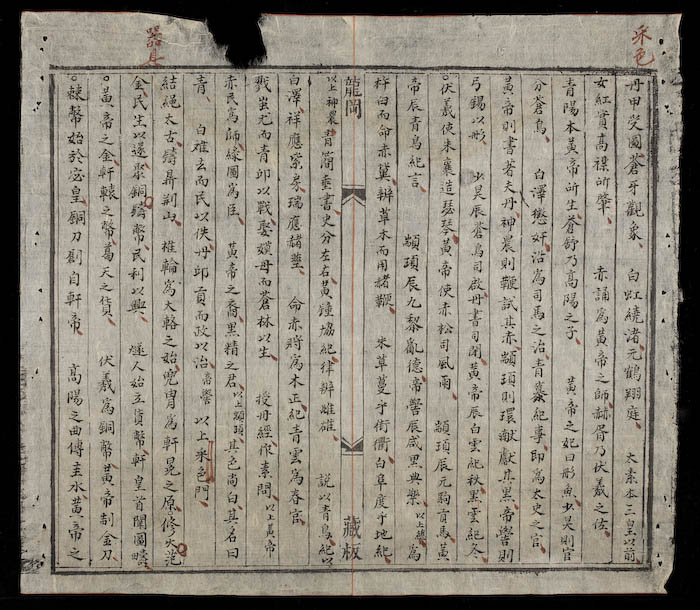 采色
丹甲受圖蒼牙觀象　白虹繞渚元鶴翔庭　太素本三皇以前
女紅實高禖所肇　赤誦爲黃帝之師赫胥乃伏羲之佐
青陽本黃帝所生蒼舒乃高陽之子　黃帝之妃曰彤魚少昊則官
分蒼鳥　白澤懲奸沿爲司馬之治青篆紀事即爲太史之官
黃帝則書著夫丹神農則鞭試其赤顓頊則環獻其黑帝嚳則
弓錫以彤　少昊辰蒼鳥司啟丹書司閉黃帝辰白雲紀秋黑雲紀冬
伏羲使朱襄造瑟琴黃帝使赤松司風雨　顓頊辰元駒貢馬黃
帝辰青鳥紀言　顓頊辰九黎亂德帝嚳辰咸黑典樂以上 爲
杵臼而命赤冀辨草木而用赭鞭　朱草蔓乎街衢白阜度乎地紀
龍岡　藏板
以上神農青簡垂書史分左右黃鐘協紀律辨雌雄　說以青鳥紀以
白澤祥應紫房瑞應赭
命赤將爲木正紀青雲爲春官
戮蚩尤而青邱以戰娶嫫母而蒼林以生　授丹經作素問以上黃帝
赤民爲師綠圖爲臣　黃帝之裔黑精之君以上顓頊其色尚白其名曰
青　白雉玄而民以佚丹邱貢而政以治帝嚳　以上采色門
器具
結繩太古鑄鼎荆山　椎輪爲大輅之始兜冑爲軒冕之原修火范
金民生以遂聚銅鑄幣民利以興　燧人始立貨幣軒皇首闡圖疇
黃帝之金軒轅之幣葛天之貨　伏羲爲銅幣黃帝制金刀
棘幣始於宓皇銅刀創自軒帝　高陽之曲傳圭水黃帝之